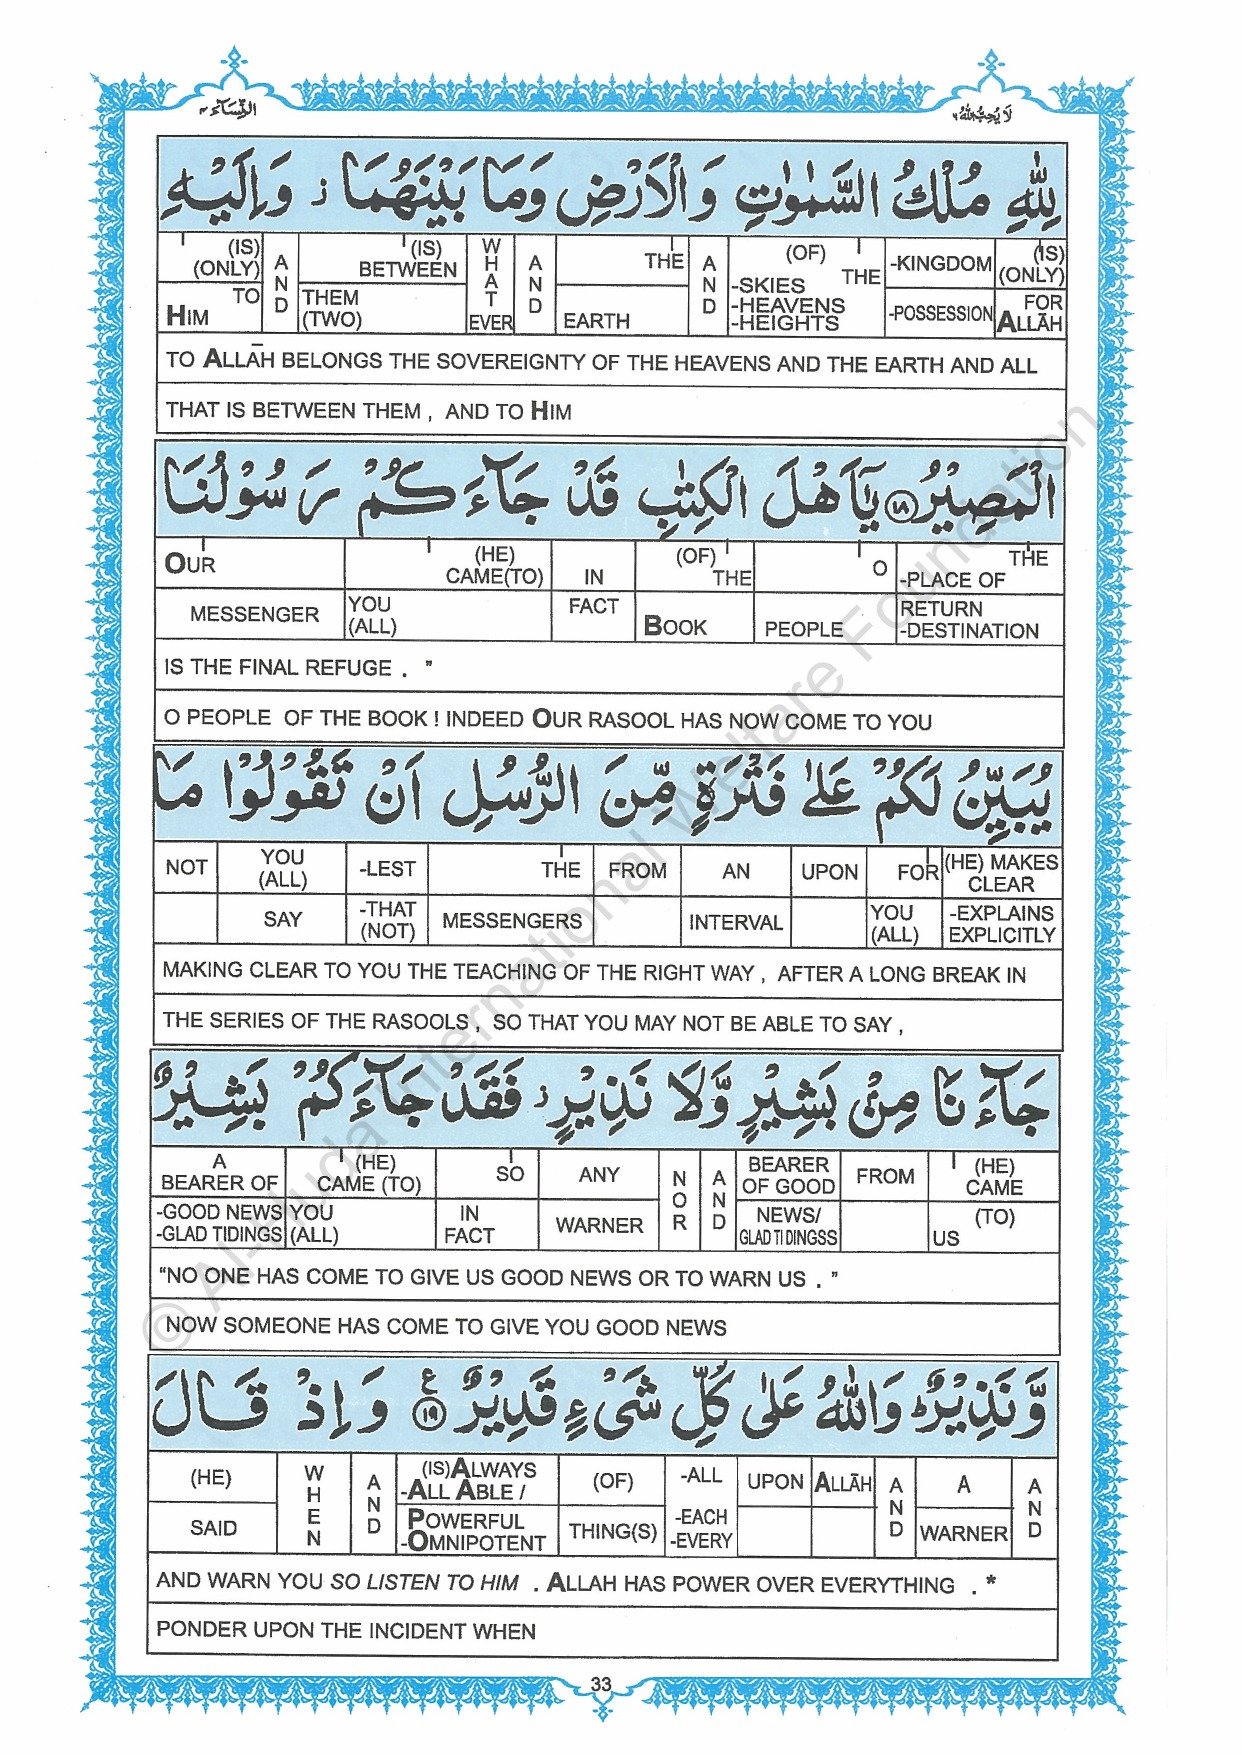 النِّسَآء ٤
لَا يُحِبُّ اللّٰهُ ٦
لِلّٰهِ مُلْكُ السَّمٰوٰتِ وَالْاَرْضِ وَمَا بَيْنَهُمَا ز وَاِلَيْهِ
(IS) (ONLY) AND (IS) BETWEEN WHAT EVER AND THE AND (OF) THE -KINGDOM (IS) (ONLY)
TO HIM THEM (TWO) EARTH -SKIES -HEAVENS -HEIGHTS -POSSESSION FOR ALLĀH
TO ALLĀH BELONGS THE SOVEREIGNTY OF THE HEAVENS AND THE EARTH AND ALL
THAT IS BETWEEN THEM , AND TO HIM
الْمَصِيْرُ ۝١٨ يٰۤاَهْلَ الْكِتٰبِ قَدْ جَآءَكُمْ رَسُوْلُنَا
OUR (HE) CAME(TO) IN (OF) THE O THE -PLACE OF
MESSENGER YOU (ALL) FACT BOOK PEOPLE RETURN -DESTINATION
IS THE FINAL REFUGE . ”
O PEOPLE OF THE BOOK ! INDEED OUR RASOOL HAS NOW COME TO YOU
يُبَيِّنُ لَكُمْ عَلٰى فَتْرَةٍ مِّنَ الرُّسُلِ اَنْ تَقُوْلُوْا مَا
NOT YOU (ALL) -LEST THE FROM AN UPON FOR (HE) MAKES CLEAR
SAY -THAT (NOT) MESSENGERS INTERVAL YOU (ALL) -EXPLAINS EXPLICITLY
MAKING CLEAR TO YOU THE TEACHING OF THE RIGHT WAY , AFTER A LONG BREAK IN
THE SERIES OF THE RASOOLS , SO THAT YOU MAY NOT BE ABLE TO SAY ,
جَآءَنَا مِنْۢ بَشِيْرٍ وَّلَا نَذِيْرٍ ز فَقَدْ جَآءَكُمْ بَشِيْرٌ
A BEARER OF (HE) CAME (TO) SO ANY NOR AND BEARER OF GOOD FROM (HE) CAME
-GOOD NEWS -GLAD TIDINGS YOU (ALL) IN FACT WARNER NEWS/ GLAD TIDINGSS (TO) US
“NO ONE HAS COME TO GIVE US GOOD NEWS OR TO WARN US . ”
NOW SOMEONE HAS COME TO GIVE YOU GOOD NEWS
وَّنَذِيْرٌ ط وَاللّٰهُ عَلٰى كُلِّ شَىْءٍ قَدِيْرٌ ۝١٩ ع وَاِذْ قَالَ
(HE) WHEN AND (IS)ALWAYS -ALL ABLE / (OF) -ALL UPON ALLĀH AND A AND
SAID POWERFUL -OMNIPOTENT THING(S) -EACH -EVERY WARNER
AND WARN YOU SO LISTEN TO HIM . ALLAH HAS POWER OVER EVERYTHING . *
PONDER UPON THE INCIDENT WHEN
33
© Al-Huda International Welfare Foundation